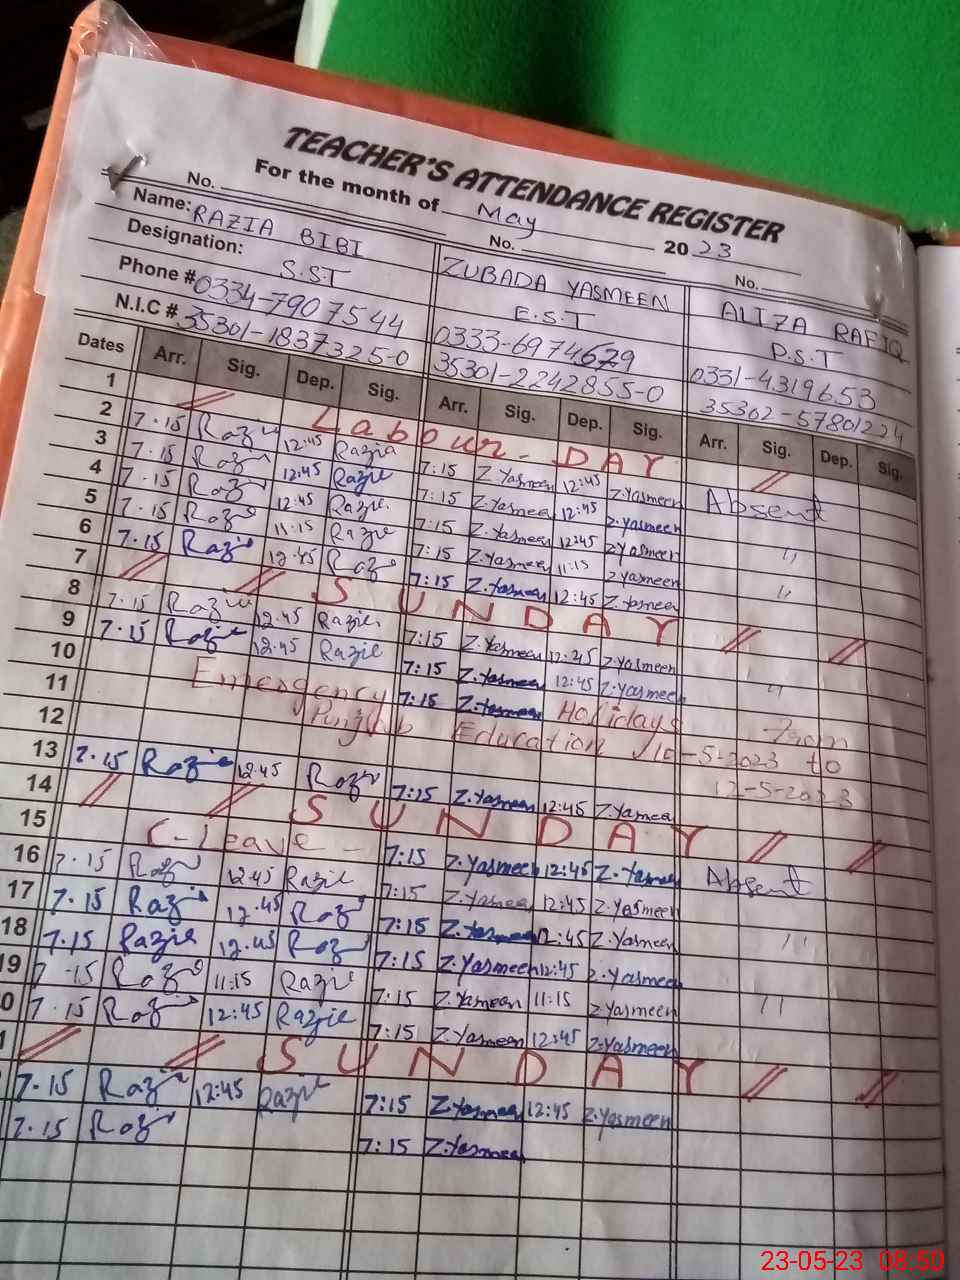 TEACHER'S ATTENDANCE REGISTER
For the month of May 2023
No. No. No.
Name: RAZIA BIBI ZUBADA YASMEEN ALIZA RAFIQ
Designation: S.S.T E.S.T P.S.T
Phone # 0334-7907544 0333-6974679 0331-4319653
N.I.C # 35301-1837325-0 35301-2242855-0 35302-57801224
Dates Arr. Sig. Dep. Sig. Arr. Sig. Dep. Sig. Arr. Sig. Dep. Sig.
1 // Labour - DAY //
2 7.15 12:45 Razia 7:15 Z.Yasmeen 12:45 Z.Yasmeen Absent
3 7.15 12:45 Razie 7:15 Z.Yasmeen 12:45 Z.Yasmeen
4 7.15 12:45 Razie 7:15 Z.Yasmeen 12:45 Z.Yasmeen ,,
5 7.15 11:15 Razie 7:15 Z.Yasmeen 11:15 Z.Yasmeen
6 7.15 12.45 7:15 Z.Yasmeen 12:45 Z.Yasmeen ,,
7 // // SUNDAY // //
8 7.15 12.45 Razie 7:15 Z.Yasmeen 12:45 Z.Yasmeen
9 7.15 12.45 Razie 7:15 Z.Yasmeen 12:45 Z.Yasmeen ,,
10 7:15 Z.Yasmeen Holidays From
11 Emergency Punjab Education 10-5-2023 to
12 12-5-2023
13 7.15 12.45 7:15 Z.Yasmeen 12:45 Z.Yasmeen
14 // // SUNDAY // //
15 C-Leave - 7:15 Z.Yasmeen 12:45 Z.Yasmeen Absent
16 7.15 12.45 Razie 7:15 Z.Yasmeen 12:45 Z.Yasmeen
17 7.15 12.45 7:15 Z.Yasmeen 12:45 Z.Yasmeen ,,
18 7.15 Razie 12.45 7:15 Z.Yasmeen 12:45 Z.Yasmeen
19 7.15 11:15 Razie 7:15 Z.Yasmeen 11:15 Z.Yasmeen ,,
0 7.15 12:45 Razie 7:15 Z.Yasmeen 12:45 Z.Yasmeen
1 // // SUNDAY // //
7.15 12:45 Razie 7:15 Z.Yasmeen 12:45 Z.Yasmeen
7.15 7:15 Z.Yasmeen
23-05-23 08:50